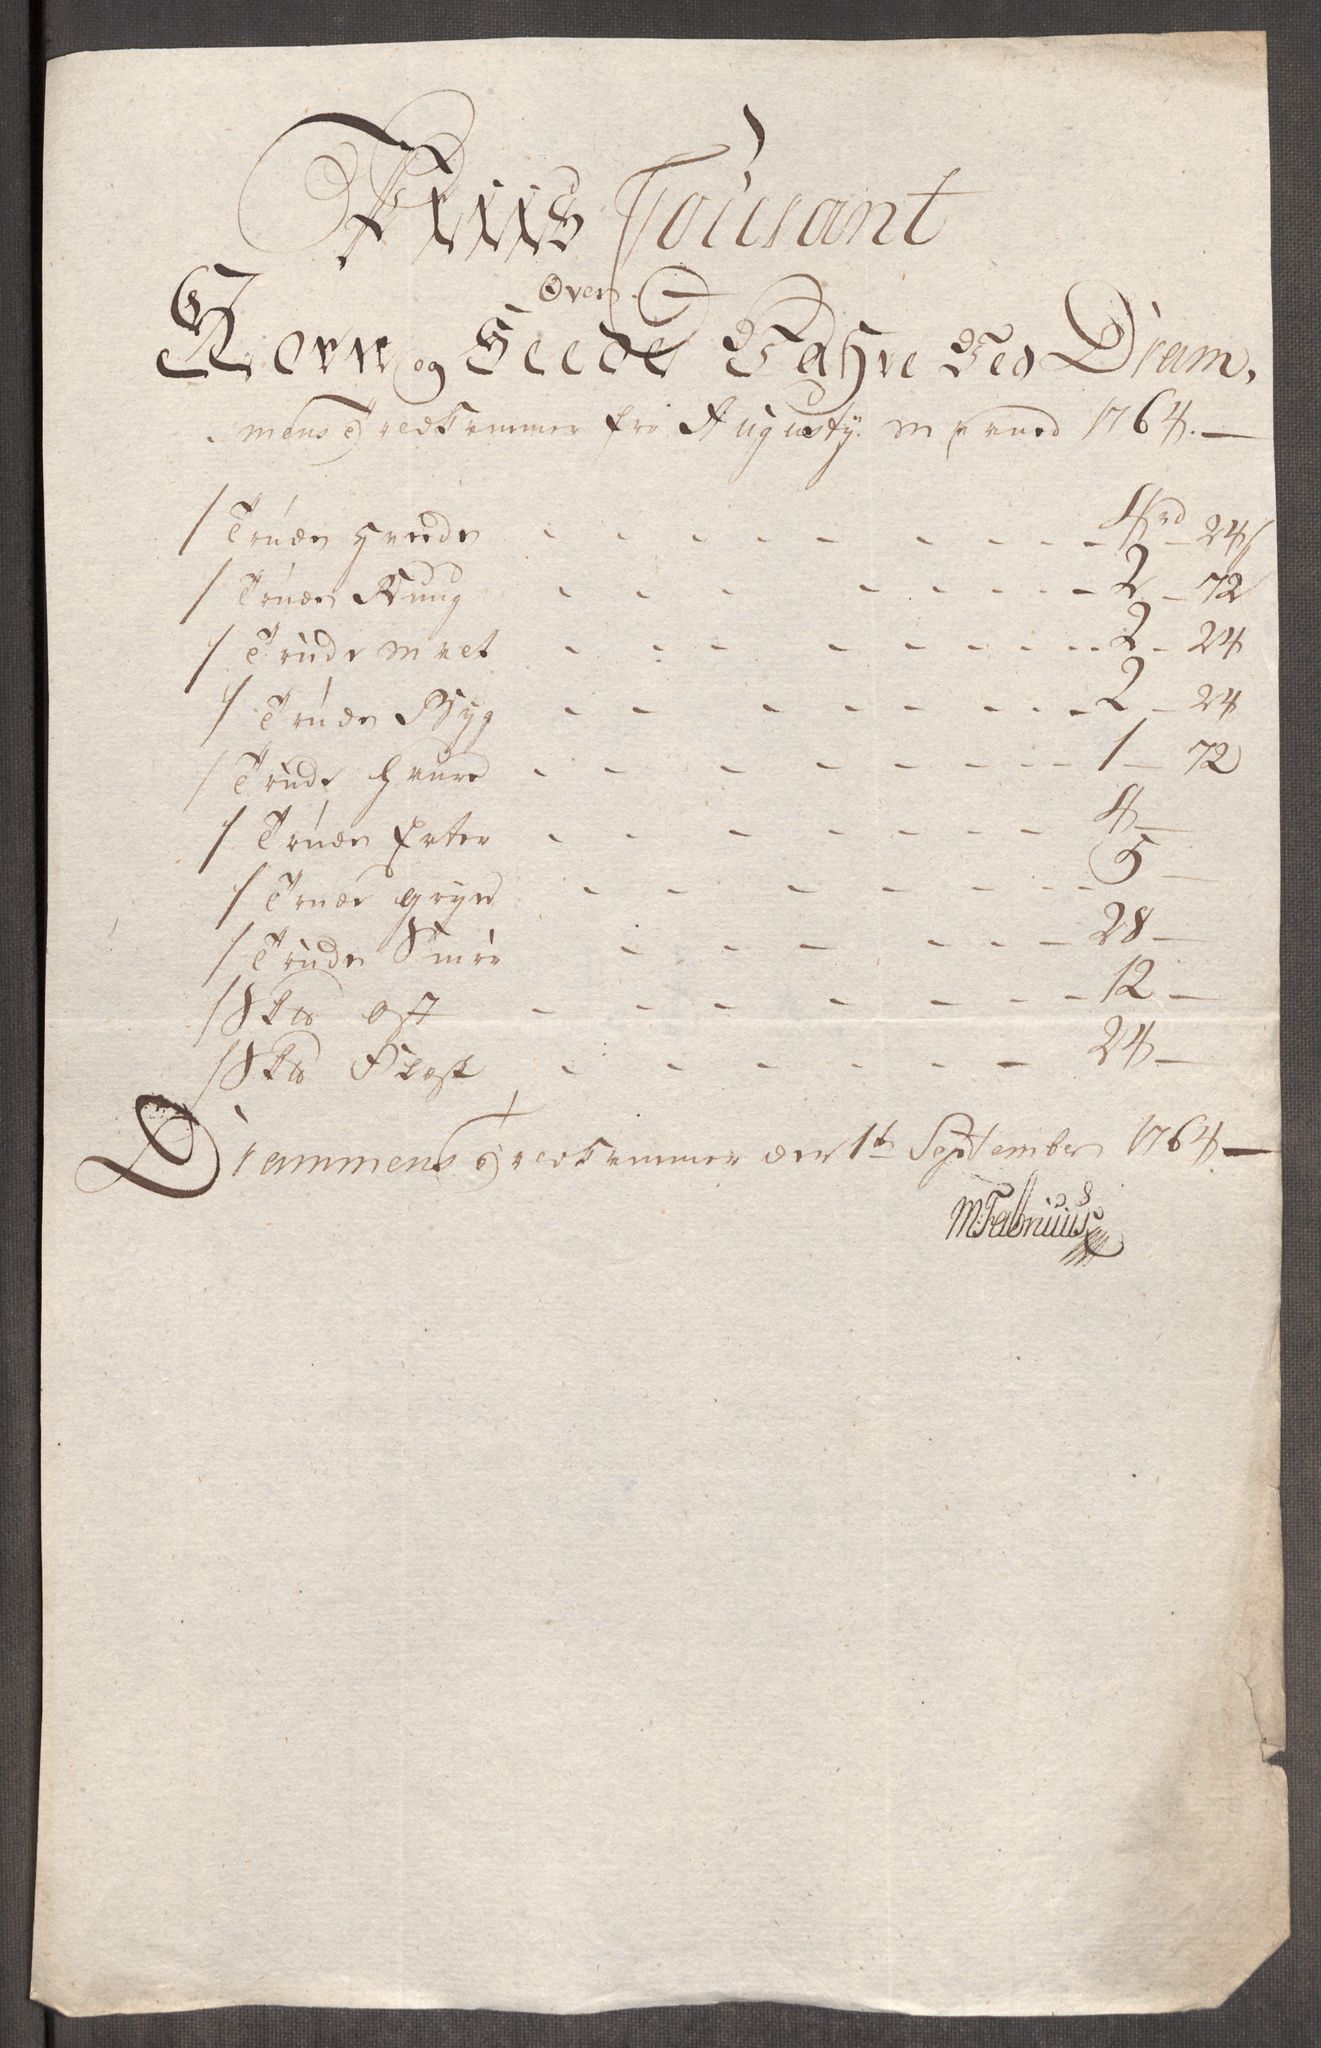 Priis Courant
Over
Korn og Feede Vahre Ved Dram,
mens Giedkammer fra Augusty Maaned 1764.
1 Tønde Hvede 4 rd 24 s
1 Tønde Rug 2 72
1 Tønde Malt 2 24
1 Tønde Byg 2 24
1 Tønde Havre 1 72
1 Tønde Erter 4
1 Tønde Gryn 5
1 Tønde Smør 28
1 Skd Ost 12
1 Skd Flesk 24
Drammens den 1te September 1764
M: Fabriiius